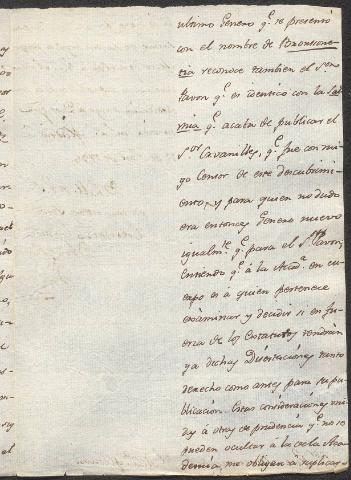 ultimo Genero q.e se presentó
con el nombre de
cia reconoce tambien el S.or
Pavon q.e es identico con la
q.e acaba de publicar el
S.or Cavanilles, q.e fue con mi-
go Censor de este descubrimi-
ento, y para quien no dudo
era entonces Genero nuevo
igualm.te q.e para el S.r Pavon;
Entiendo q.e á la Acad.a en cu-
erpo es á quien pertenece
examinar y decidir si en fu-
erza de los Estatutos tendrán
ya dichas Disertaciones tanto
derecho como antes para su pu-
blicación. Estas consideraciones uni-
das á otras de prudencia q.e no se
pueden ocultar á la
demia, me obligan á suplicar